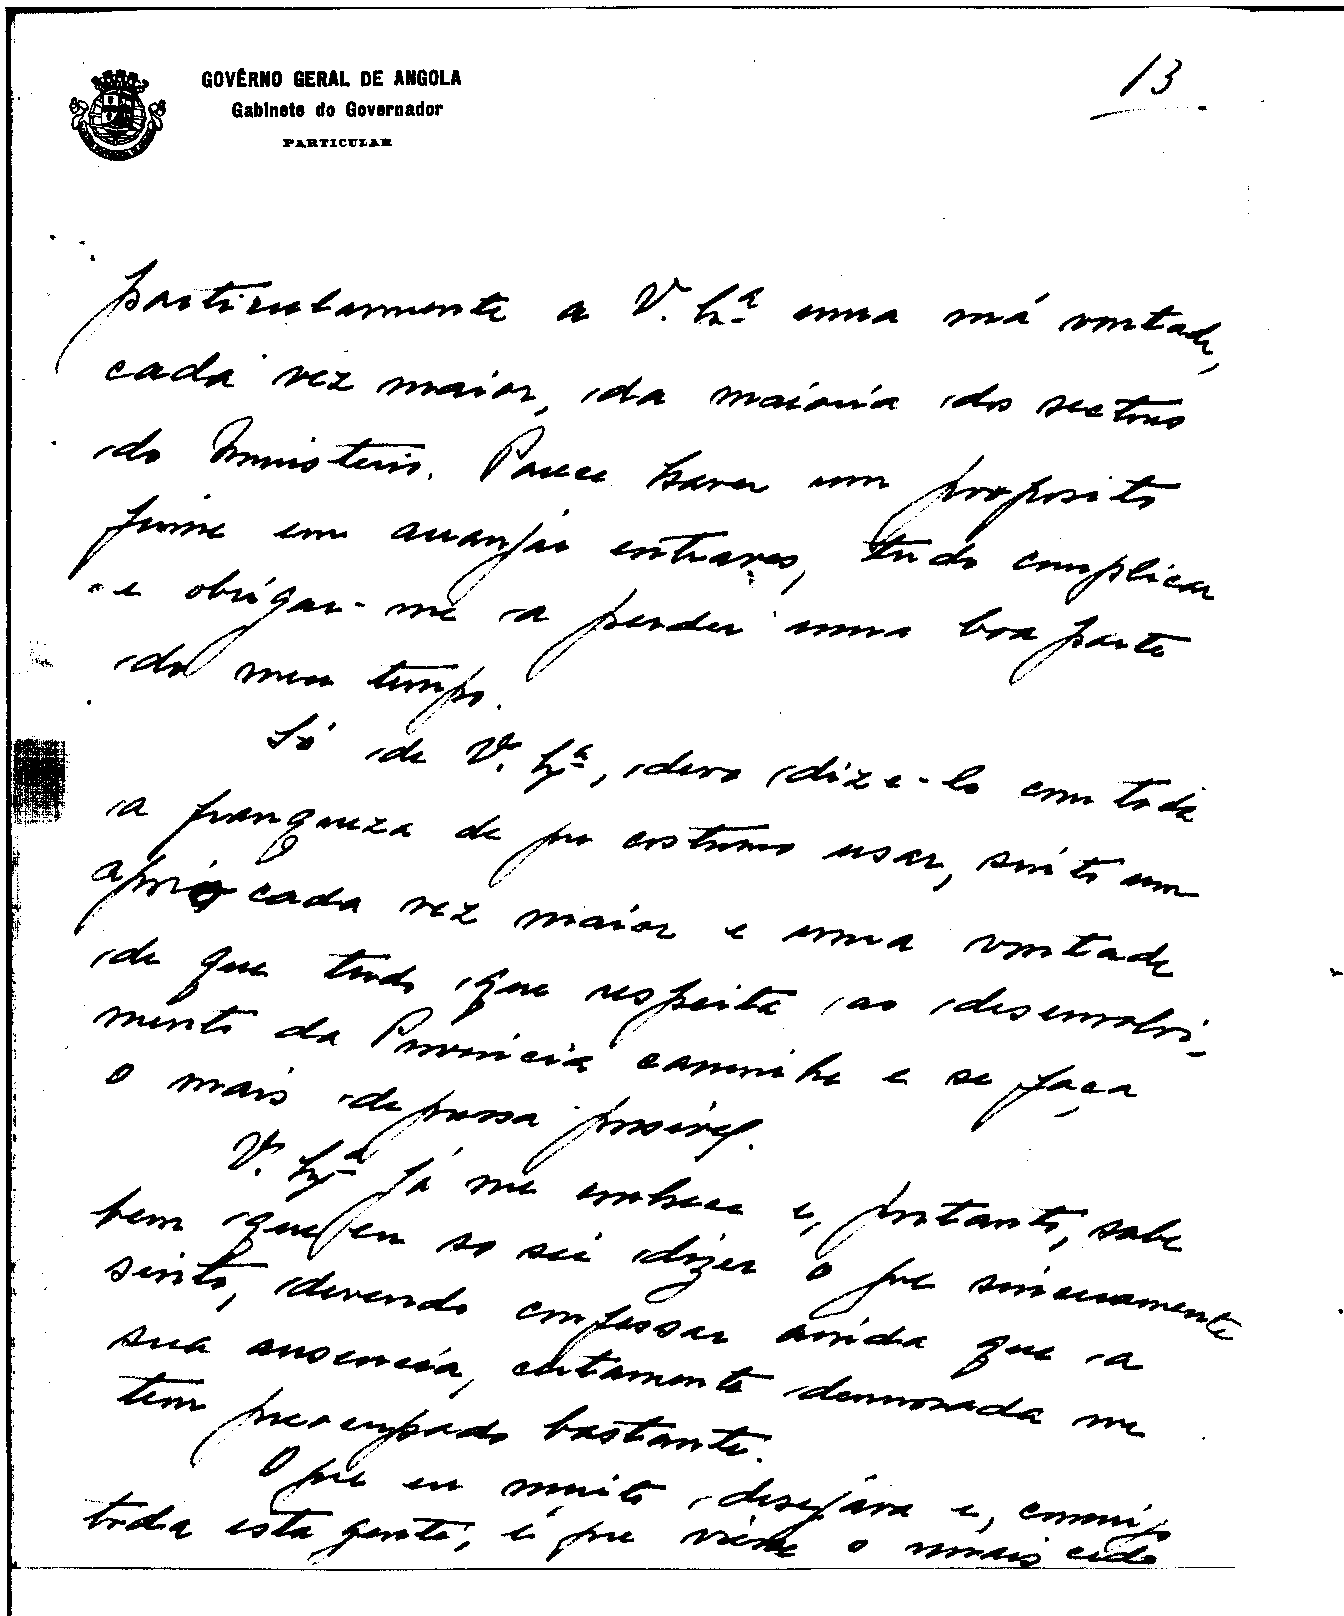 GOVÊRNO GERAL DE ANGOLA
Gabinete do Governador
PARTICULAR
13
particularmente a V. Exª uma má vontade,
cada vez maior, da maioria dos sectores
do Ministerio. Parece haver um proposito
firme em arranjar entraves, tudo complicar
e obrigar-me a perder uma boa parte
do meu tempo.
Só de V. Exª, devo dize-lo com toda
a franqueza de que costumo usar, sinto um
apoio cada vez maior e uma vontade
de que tudo que respeita ao desenvolvi-
mento da Provincia caminhe e se faça
o mais depressa possível.
V. Exª já me conhece e, portanto, sabe
bem que eu so sei dizer o que sinceramente
sinto, devendo confessar ainda que a
sua ausencia, certamente demorada me
tem preocupado bastante.
O que eu muito desejára e, comigo
toda esta gente, é que viesse o mais cedo